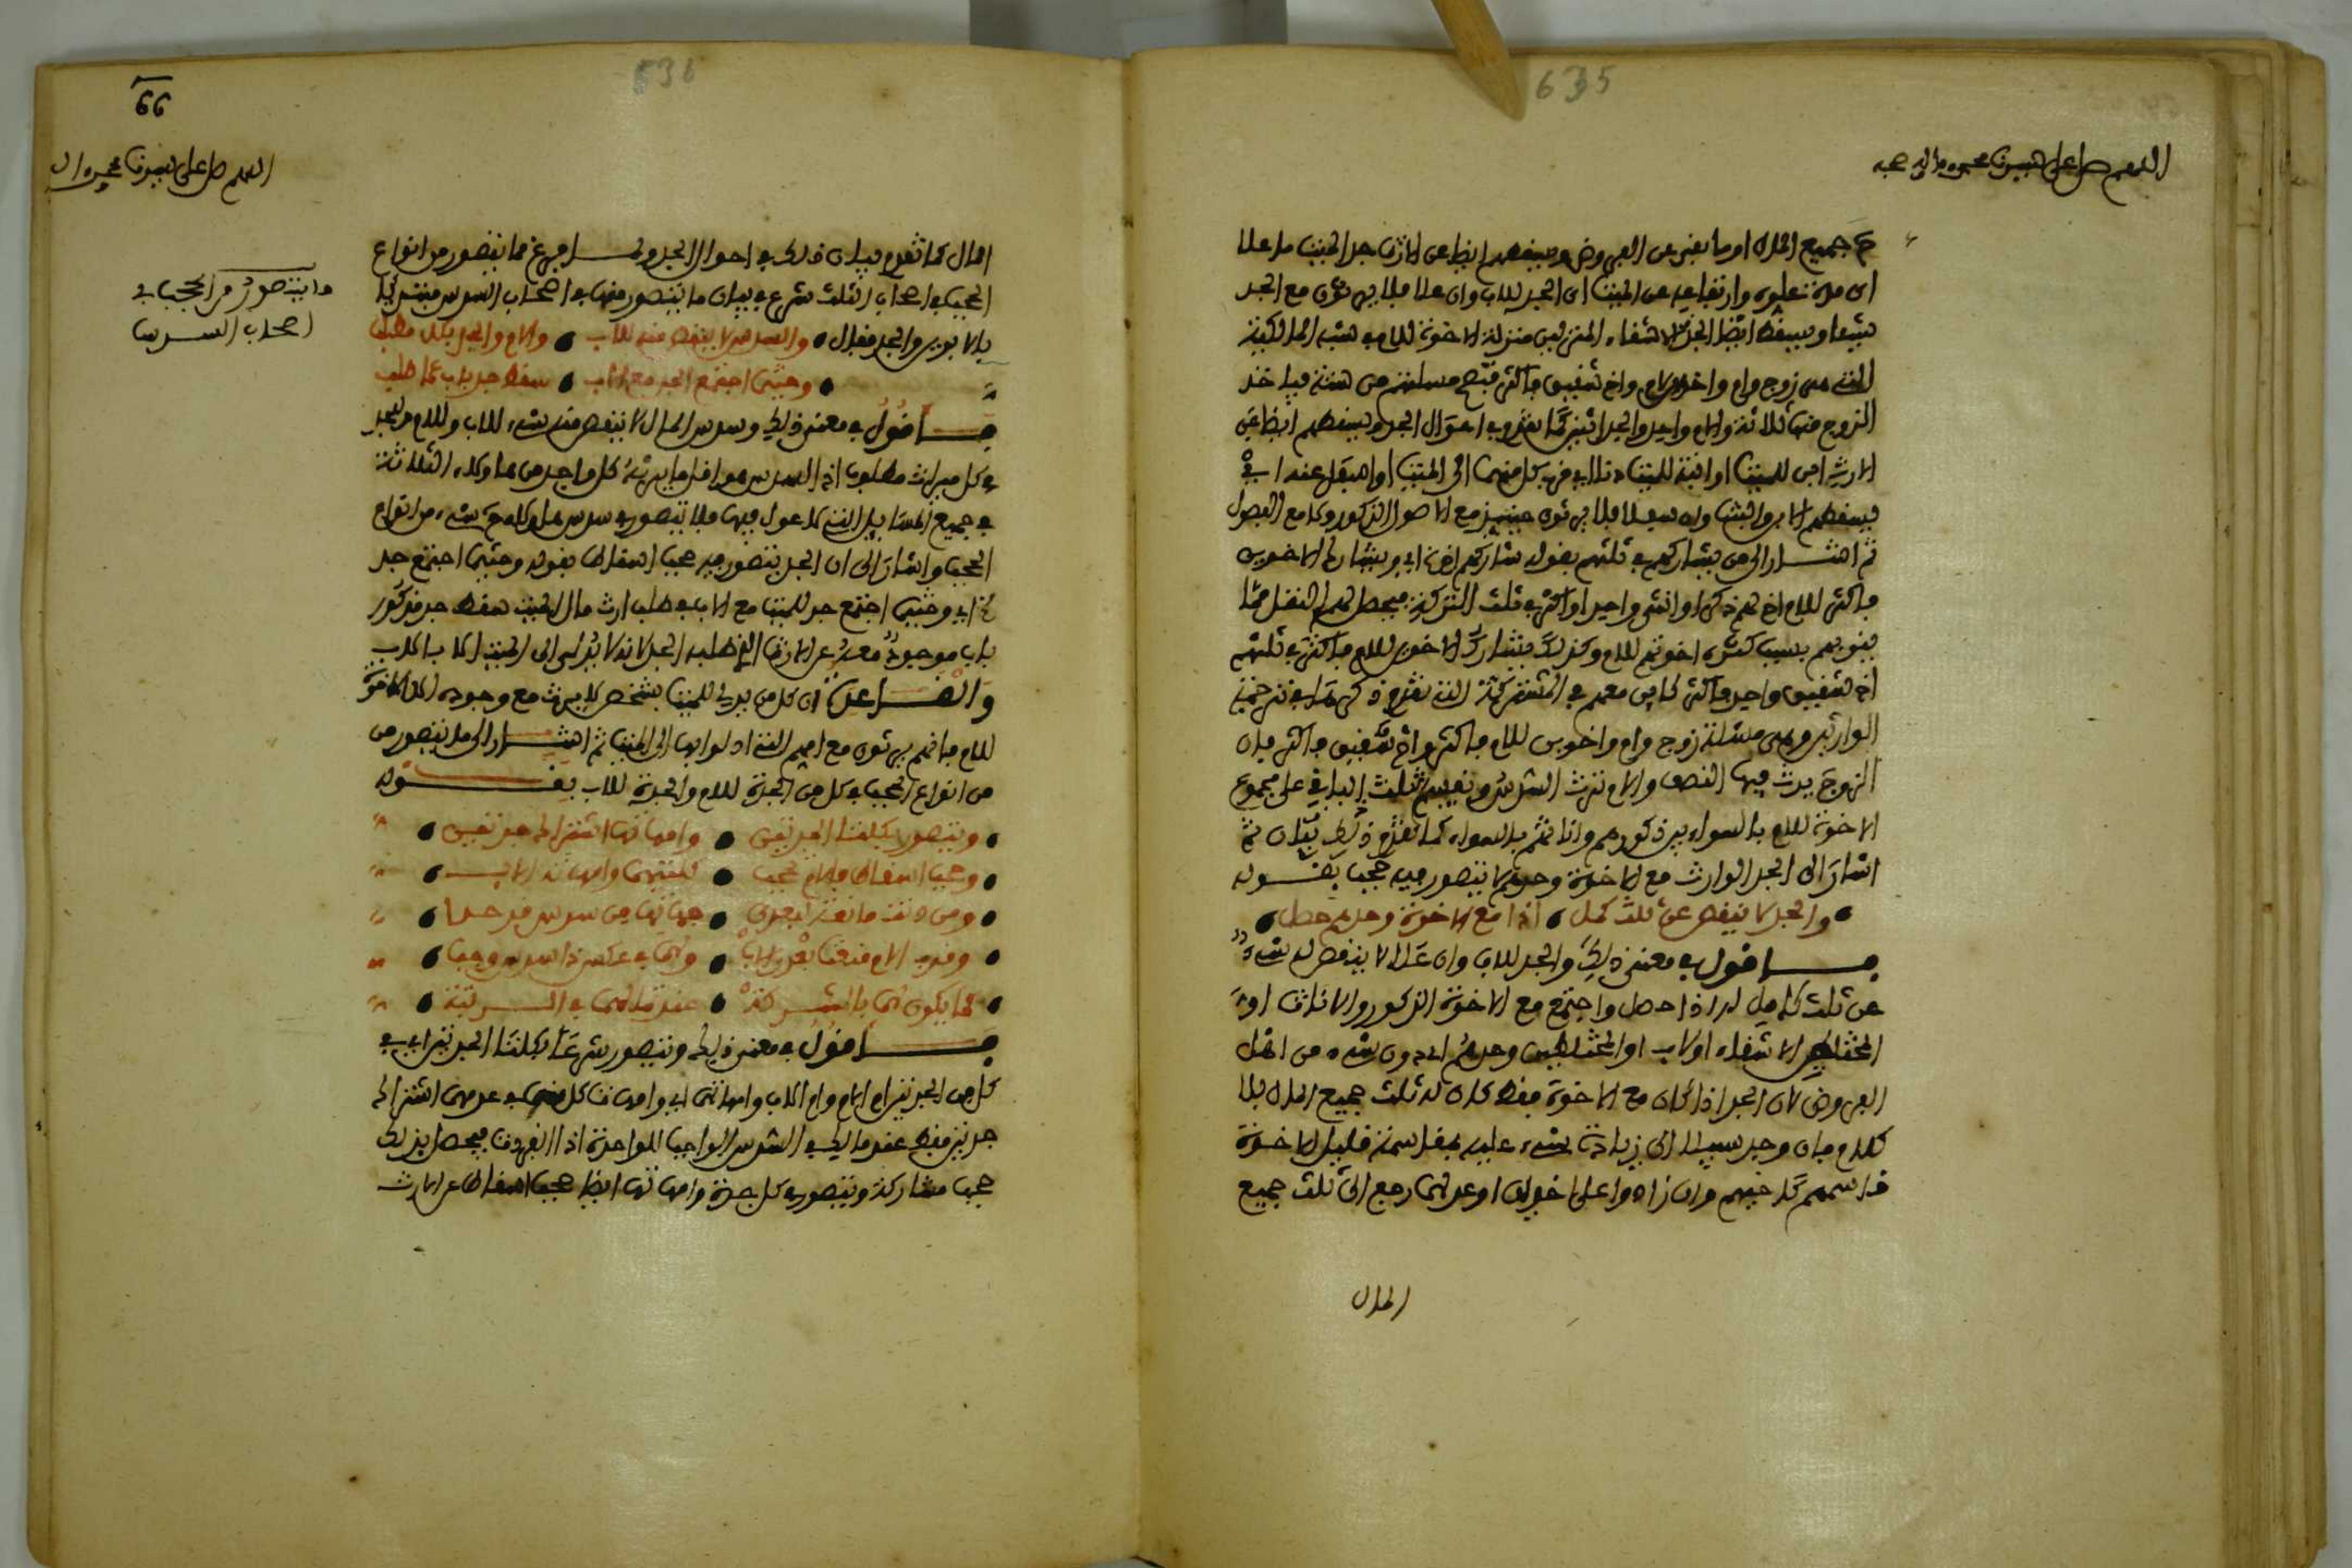 635
اللهم صل على سيدنا محمد واله وصحبه
جميع المال او ما بقي عن الفروض ويسقطهم ايضا عن الارث جد الميت ما علا
اي مدة علوه وارتفاعه عن الميت اي الجد للاب وان علا فلا يرثون مع الجد
شيئا ويسقط ايضا الجد الاشقاء المنزلين منزلة الاخوة للام في شبه المالكية
التي هي زوج وام واخوة لام واخ شقيق فاكثر فتصح مسئلتهم من ستة فياخذ
الزوج منها ثلاثة والام واحد والجد اثنين كما تقدم في احوال الجد ويسقطهم ايضا عن
الارث ابن للميت او ابنة للميت
فيسقطهم الابن والبنت وان سفلا فلا يرثون حينئذ مع الاصول الذكور ولا مع الفصول
ثم اشار الى من يشاركهم في ثلثهم بقوله شاركهم اخ اي ويشارك الاخوين
فاكثر للام اخ لهم ذكر او انثى واحد او اكثر في ثلث التركة فيحصل لهم النقل مما
ينوبهم بسبب كثرة اخوتهم للام وكذلك يشارك الاخوين للام فاكثر في ثلثهم
اخ شقيق واحد فاكثر كاين معهم في المشتركة التي تقدم ذكرها في ترجمة
الوارثين وهي مسئلة زوج وام واخوين للام فاكثر واخ شقيق فاكثر فان
الزوج يرث فيها النصف والام ترث السدس ويقسم الثلث الباقي على مجموع
الاخوة للام بالسواء بين ذكورهم واناثهم بالسواء كما تقدم ذلك بيان ثم
اشار الى الجد الوارث مع الاخوة وحدهم لا يتصور فيه حجب بقوله
والجد لا ينقص عن ثلث كمل • اذا مع الاخوة وحدهم حصل •
فاقول في معنى ذلك والجد للاب وان علا لا ينقص له شيء
عن ثلث كامل له اذا حصل واجتمع مع الاخوة الذكور والاناث او
المختلطين الاشقاء او لاب او المختلطين وحدهم اي دون شيء من اهل
الفروض لان الجد اذا كان مع الاخوة فقط كان له ثلث جميع المال بلا
كلام فان وجد سبيلا الى زيادة شيء عليه بمقاسمة قليل الاخوة
قاسمهم كاخيهم وان زادوا على اخوين او عدلهما رجع الى ثلث جميع
المال
636
66
اللهم صل على سيدنا محمد وال
ما يتصور من الحجب في
اصحاب السدس
المال كما تقدم بيان ذلك في احوال الجد ولما فرغ مما يتصور من انواع
الحجب في اصحاب الثلث شرع في بيان ما يتصور منها في اصحاب السدس مبتدئا
بالابوين والجد فقال • والسدس لا ينقص منه للاب • والام والجد بكل مطلب
• وحيثما اجتمع الجد مع اب • سقط جد باب عما طلب
فاقول في معنى ذلك وسدس المال لا ينقص منه شيء للاب وللام وللجد
في كل ميراث مطلوب اذ السدس هو اقل ما يرثه كل واحد من هاولاء الثلاثة
في جميع المسايل التي لا عول فيها فلا يتصور في سدس المال كله حجب شيء من انواع
الحجب واشار الى ان الجد يتصور فيه حجب اسقاط بقوله وحيثما اجتمع جد
الخ اي وحيثما اجتمع جد للميت مع الاب في طلب ارث مال الميت سقط جد مذكور
باب موجود معه عن الارث الذي طلبه الجد لانه لا يدلي الى الميت الا بالاب
والقاعدة ان كل من يدلي للميت بشخص لا يرث مع وجوده الا الاخوة
للام فانهم يرثون مع امهم التي ادلوا بها الى الميت ثم اشار الى ما يتصور من
من انواع الحجب في كل من الجدة للام والجدة للاب بقوله
• ويتصور بكلتا الجدتين • وامهاتها اشتراك جدتين •
• وحجب اسقاط فالام تحجب • كلتيهما وامهات الاب •
• ومن دنت مانعة لبعدى • جهاتها من سدس قد حدا •
• وقرب الام منعت بعد الاب • ولها في عكس ذا السدس وجب •
فاقول في معنى ذلك ويتصور شرعا بكلتا الجدتين اي في
كل من الجدتين ام الام وام الاب وامهاتها اي وامهات كل منهما في عدمها اشتراك
جدتين فقط عند مالك في السدس الواجب للواحدة اذا انفردت فيحصل بذلك
حجب مشاركة ويتصور في كل جدة وامهاتها ايضا حجب اسقاط عن الارث